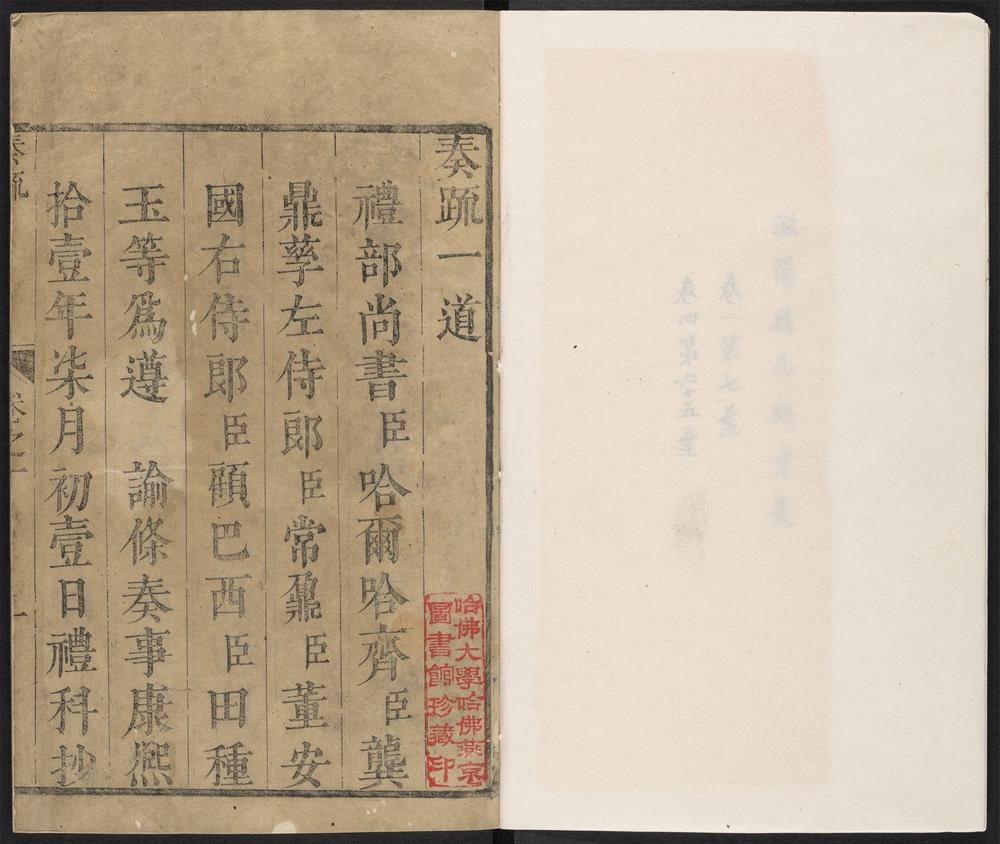 奏疏一道
禮部尚書臣哈爾哈齊臣龔
鼎孳左侍郎臣常鼐臣董安
國右侍郎臣顧巴西臣田種
玉等為遵　諭條奏事康熙
拾壹年柒月初壹日禮科抄
奏疏
卷之一
一
哈佛大學哈佛燕京
圖書館珍藏印
卷一第七葉
卷四第六十五葉